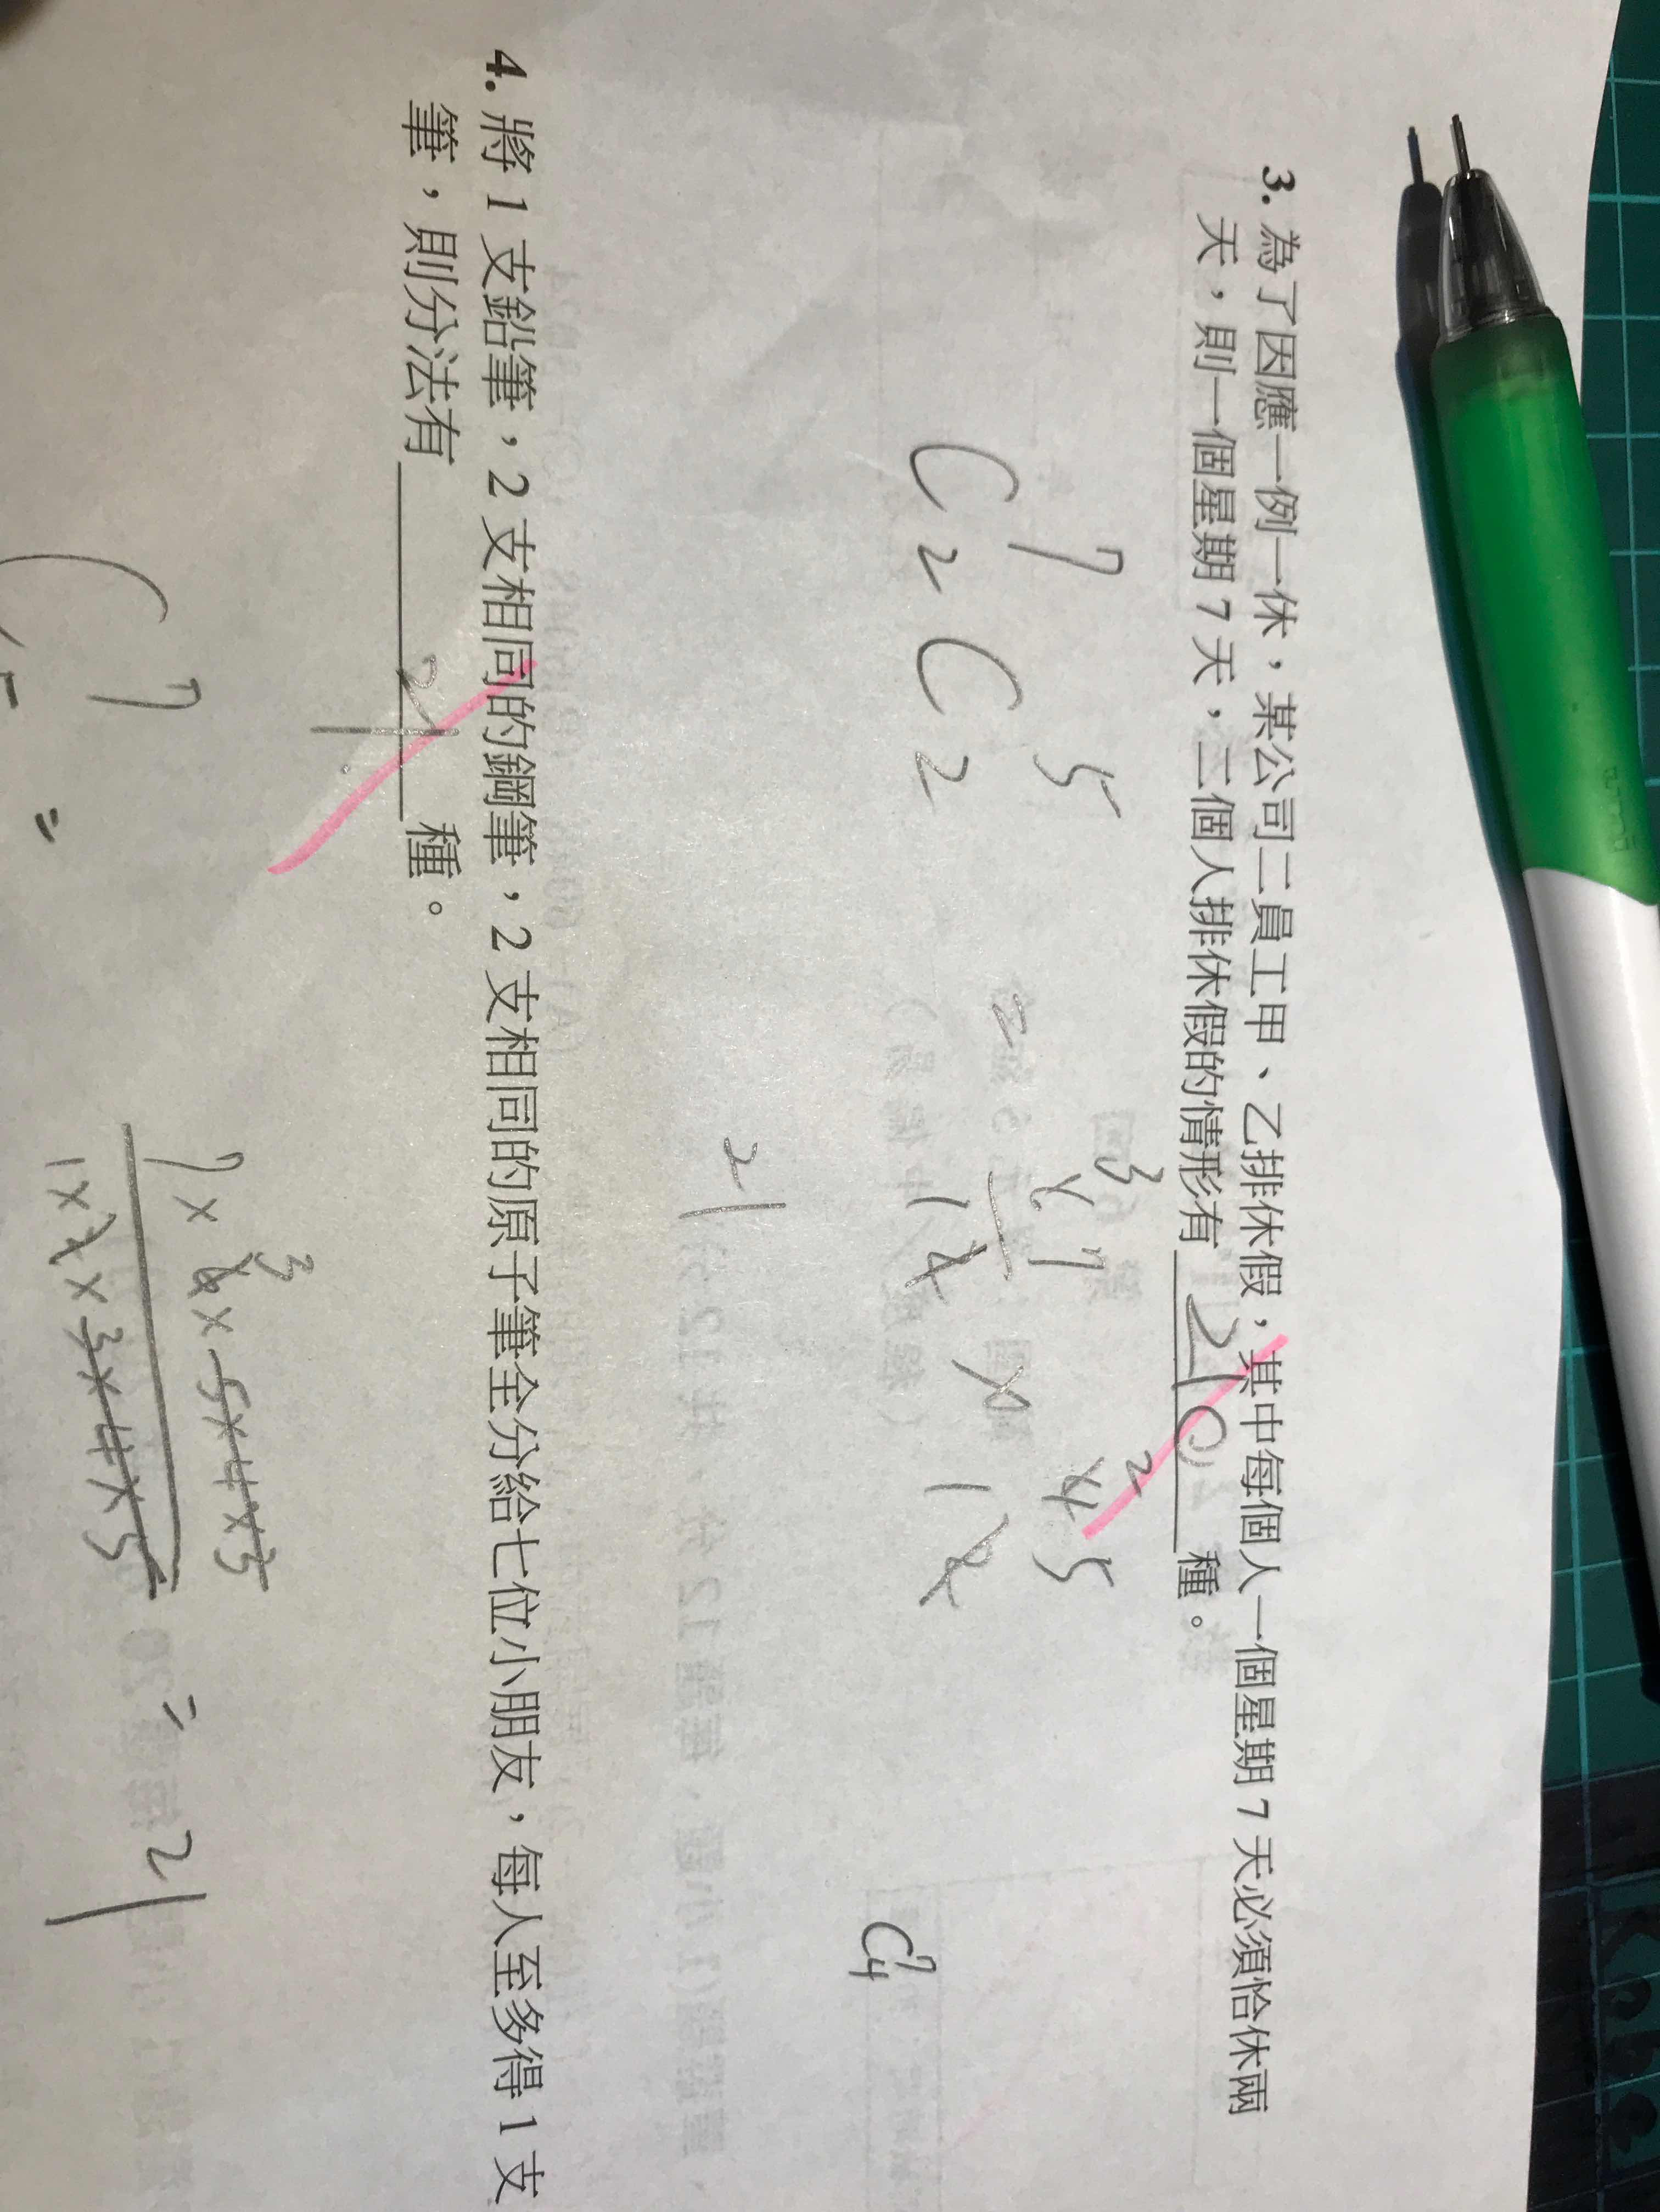 3. 為了因應一例一休，某公司二員工甲、乙排休假，其中每個人一個星期 7 天必須恰休兩
天，則一個星期 7 天，二個人排休假的情形有 210 種。
C 7 2 C 5 2 = 3 6 7 1 2 × 2 4 5 1 2
21
C 7 4
4. 將 1 支鉛筆，2 支相同的鋼筆，2 支相同的原子筆全分給七位小朋友，每人至多得 1 支
筆，則分法有 21 種。
C 7 5 = 7 × 6 3 × 5 × 4 × 3
1 × 2 × 3 × 4 × 5
= 21